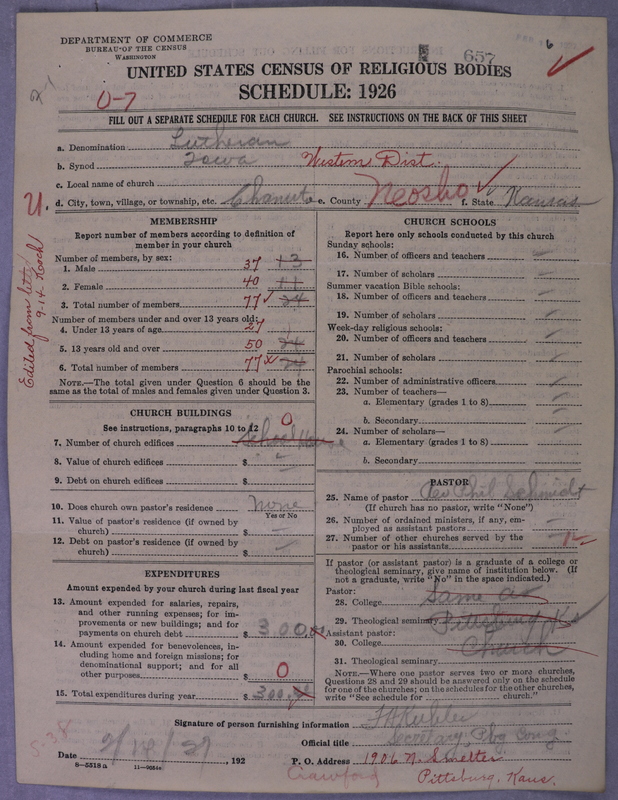 DEPARTMENT OF COMMERCE
BUREAU OF THE CENSUS
WASHINGTON
657
UNITED STATES CENSUS OF RELIGIOUS BODIES
SCHEDULE: 1926
0-7
FILL OUT A SEPARATE SCHEDULE FOR EACH CHURCH. SEE INSTRUCTIONS ON THE BACK OF THIS SHEET
a. Denomination Lutheran
b. Synod Iowa Western Dist.
c. Local name of church
d. City, town, village, or township, etc. Chanute e. County Neosho f. State Kansas
U.
Edited from letter
MEMBERSHIP
Report number of members according to definition of member in your church
Number of members, by sex:
1. Male 37 13
2. Female 40 11
3. Total number of members 77 24
Number of members under and over 13 years old:
4. Under 13 years of age 27
5. 13 years old and over 50 24
6. Total number of members 77 x 24
NOTE.—The total given under Question 6 should be the same as the total of males and females given under Question 3.
CHURCH BUILDINGS
See instructions, paragraphs 10 to 12
7. Number of church edifices School House 0
8. Value of church edifices $
9. Debt on church edifices $
10. Does church own pastor's residence? None
Yes or No
11. Value of pastor's residence (if owned by church) $
12. Debt on pastor's residence (if owned by church) $
EXPENDITURES
Amount expended by your church during last fiscal year
13. Amount expended for salaries, repairs, and other running expenses; for improvements or new buildings; and for payments on church debt $ 300.
14. Amount expended for benevolences, including home and foreign missions; for denominational support; and for all other purposes $ 0
15. Total expenditures during year $ 300.
CHURCH SCHOOLS
Report here only schools conducted by this church
Sunday schools:
16. Number of officers and teachers
17. Number of scholars
Summer vacation Bible schools:
18. Number of officers and teachers
19. Number of scholars
Week-day religious schools:
20. Number of officers and teachers
21. Number of scholars
Parochial schools:
22. Number of administrative officers
23. Number of teachers—
a. Elementary (grades 1 to 8)
b. Secondary
24. Number of scholars—
a. Elementary (grades 1 to 8)
b. Secondary
PASTOR
25. Name of pastor Rev Phil Schmidt
(If church has no pastor, write "None")
26. Number of ordained ministers, if any, employed as assistant pastors
27. Number of other churches served by the pastor or his assistants
If pastor (or assistant pastor) is a graduate of a college or theological seminary, give name of institution below. (If not a graduate, write "No" in the space indicated.)
Pastor:
28. College Same as
29. Theological seminary Pittsburg Ks
Assistant pastor:
30. College Church
31. Theological seminary
NOTE.—Where one pastor serves two or more churches, Questions 28 and 29 should be answered only on the schedule for one of the churches; on the schedules for the other churches, write "See schedule for church."
Signature of person furnishing information
Official title Secretary, Cong
Date 9/14/27, 192
P. O. Address 1906 N. Smelter
8-5518a
Crawford Pittsburg, Kans.